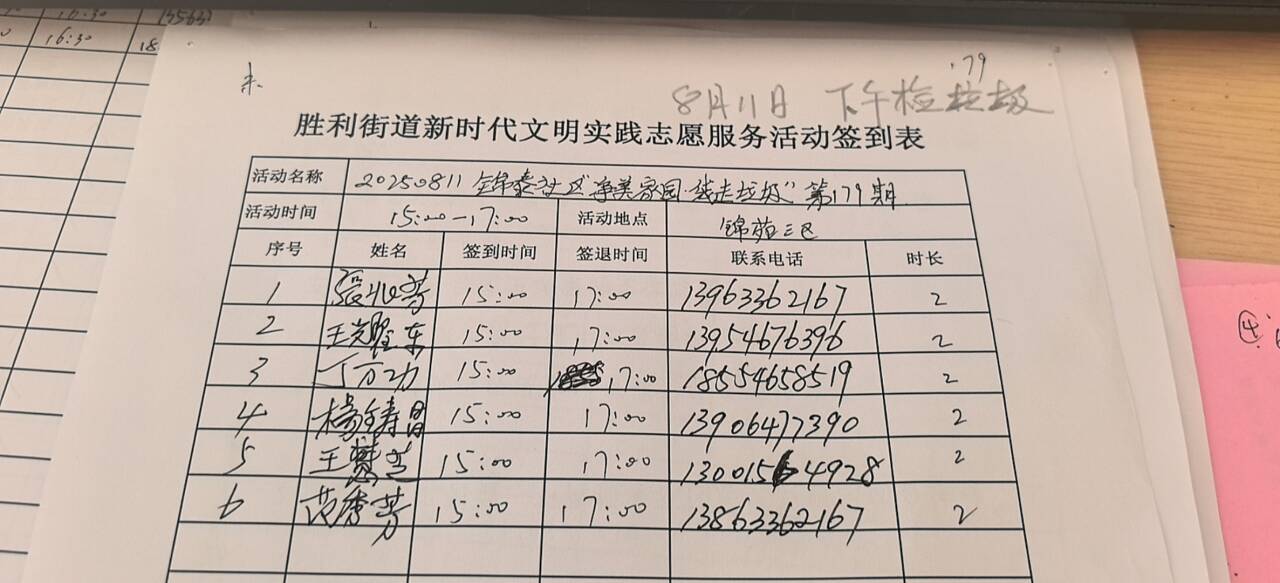 16:30
16:30 18
179
8月11日 下午捡垃圾
胜利街道新时代文明实践志愿服务活动签到表
活动名称 20250811 锦泰社区"净美家园·捡走垃圾"第179期
活动时间 15:00-17:00 活动地点 锦苑三区
序号 姓名 签到时间 签退时间 联系电话 时长
1 15:00 17:00 13963362167 2
2 王 东 15:00 17:00 13954676396 2
3 丁万功 15:00 17:00 18554658519 2
4 杨 15:00 17:00 13906477390 2
5 王 芝 15:00 17:00 2
6 范秀芳 15:00 17:00 13863362167 2
④